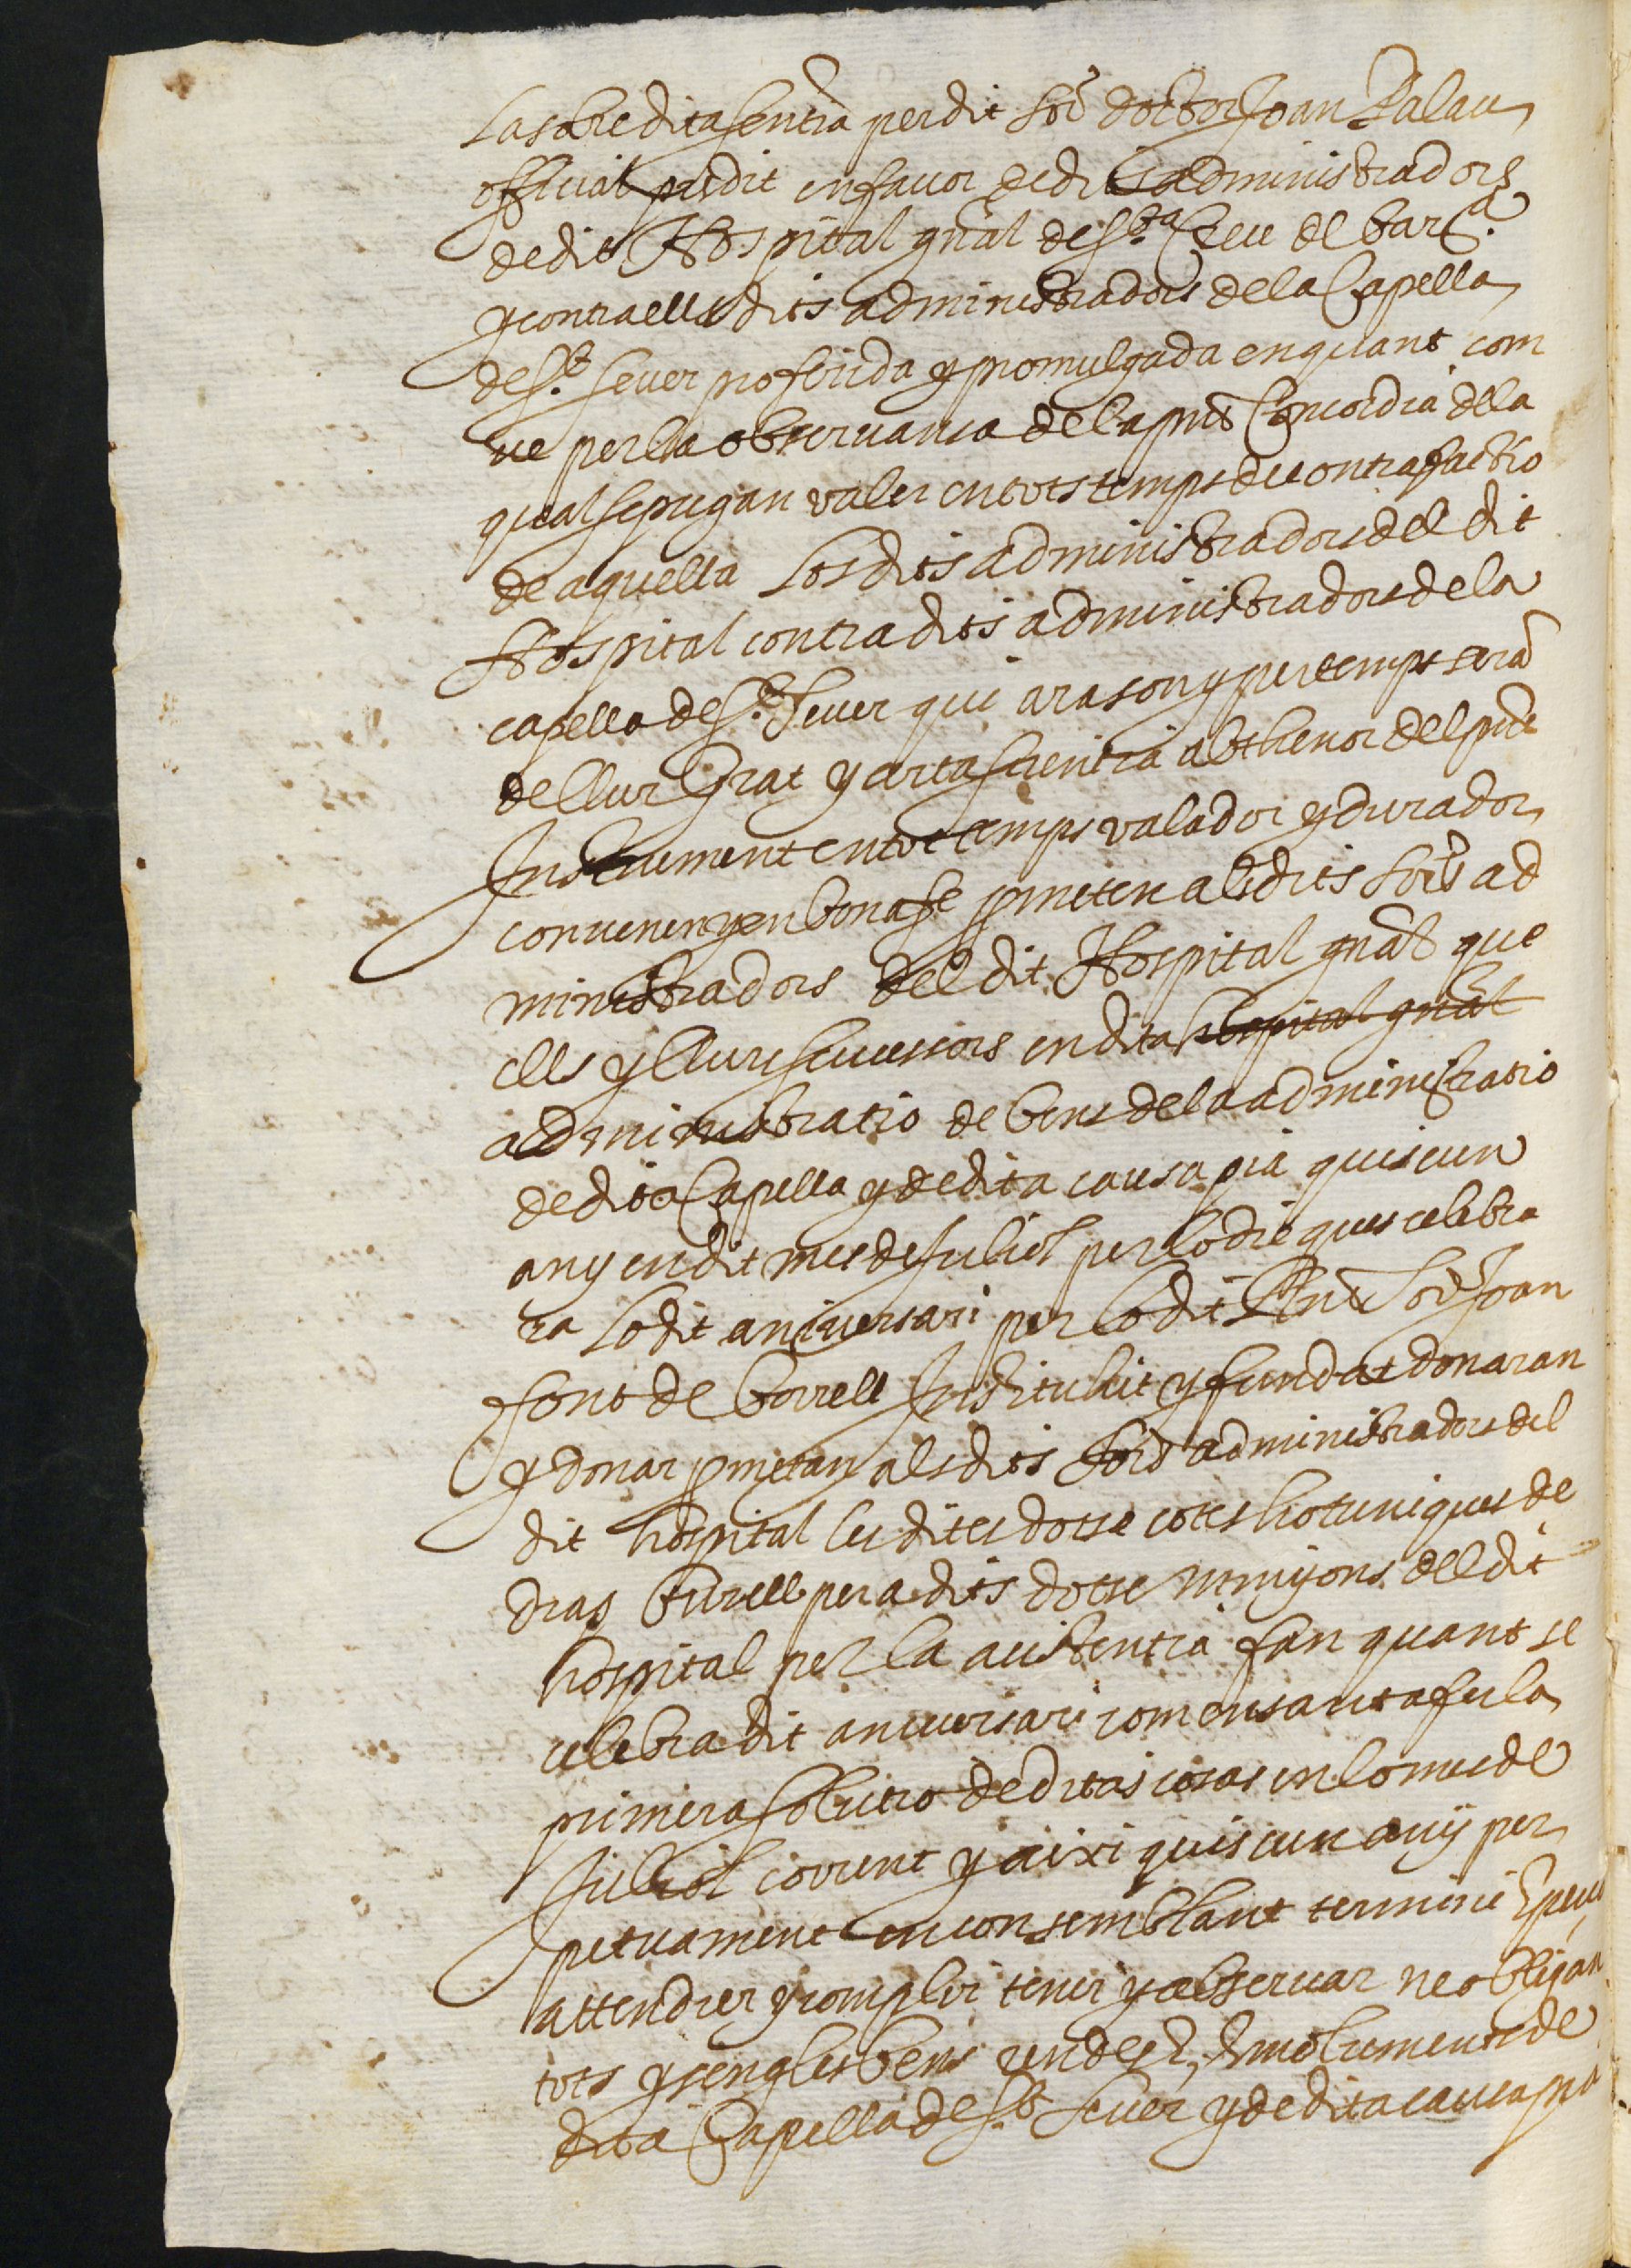 La sobredita sentia per dit Sor doctor Joan Palau
official predit en favor de dits administradors
de dit Hospital gnãl de Sta Creu de Barna
y contra ells dits administradors de la Capella
de St. Sever proferida y promulgada en quant com
ve per la observansa de la pnt Concordia de la
qual se pugan valer en tots temps de contrafactio
de aquella Los dits administradors del dit
Hospital contra dits administradors de la
capella de St. Sever qui ara son y per temps serã
de llur Grat y certa scientia ab thenor del pnt
Instrument en tot temps valador y durador
convenen y en bona fe pmeten als dits Sors ad
ministradors del dit Hospital gnãl que
ells y llurs successors en dita hospital gnãl
administratio de bens de la administratio
de dita Capella y de dita causa pia quiscun
any en dit mes de Juliol per lo die ques celebra
ra lo dit aniversari per lo dit Sor Joan
font de Borrell Instituhit y fundat donaran
y donar pmetan als dits Sors administradors del
dit hospital les dites dotse cotes ho tuniques de
drap burell per a dits dotse minyons del dit
hospital per la assistentia fan quant se
celebra dit aniversari comensant a fer la
primera solutio de ditas cosas en lo mes de
Juliol corrent y aixi quiscun any per
petuament en consemblant termini E per
attendrer y complir tenir y observar ne obligan
tots y sengles bens rendes, Emoluments de
dita Capella de St. Sever y de dita causa pia